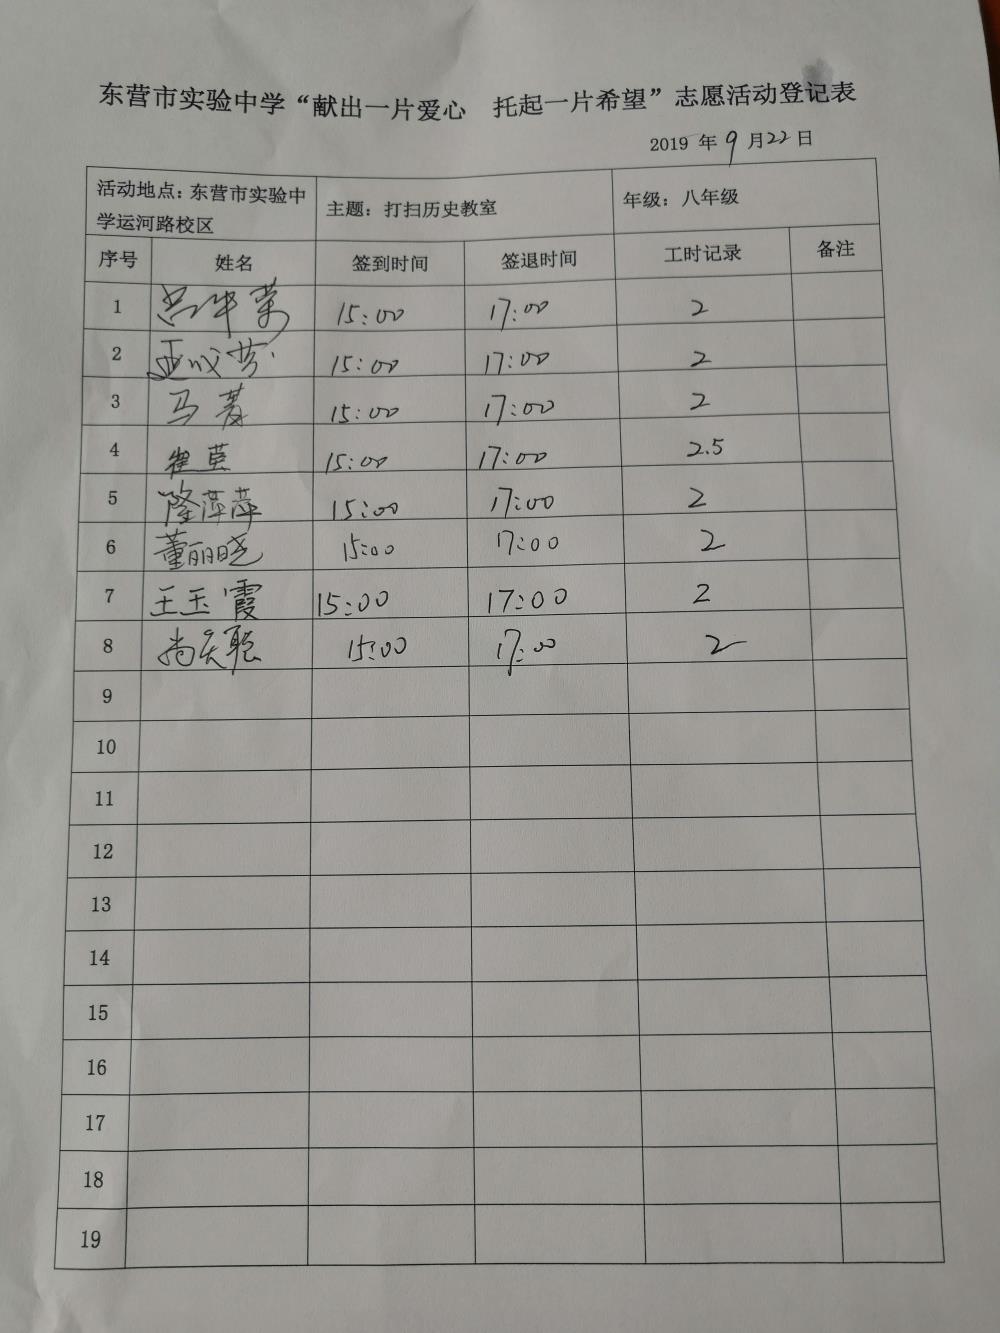 东营市实验中学“献出一片爱心 托起一片希望”志愿活动登记表
2019 年 9 月 22 日
活动地点：东营市实验中学运河路校区 主题：打扫历史教室 年级：八年级
序号 姓名 签到时间 签退时间 工时记录 备注
1 15:00 17:00 2
2 15:00 17:00 2
3 马 15:00 17:00 2
4 崔莫 15:00 17:00 2.5
5 隆萍萍 15:00 17:00 2
6 董丽晓 15:00 17:00 2
7 王玉霞 15:00 17:00 2
8 尚庆聪 15:00 17:00 2
9
10
11
12
13
14
15
16
17
18
19